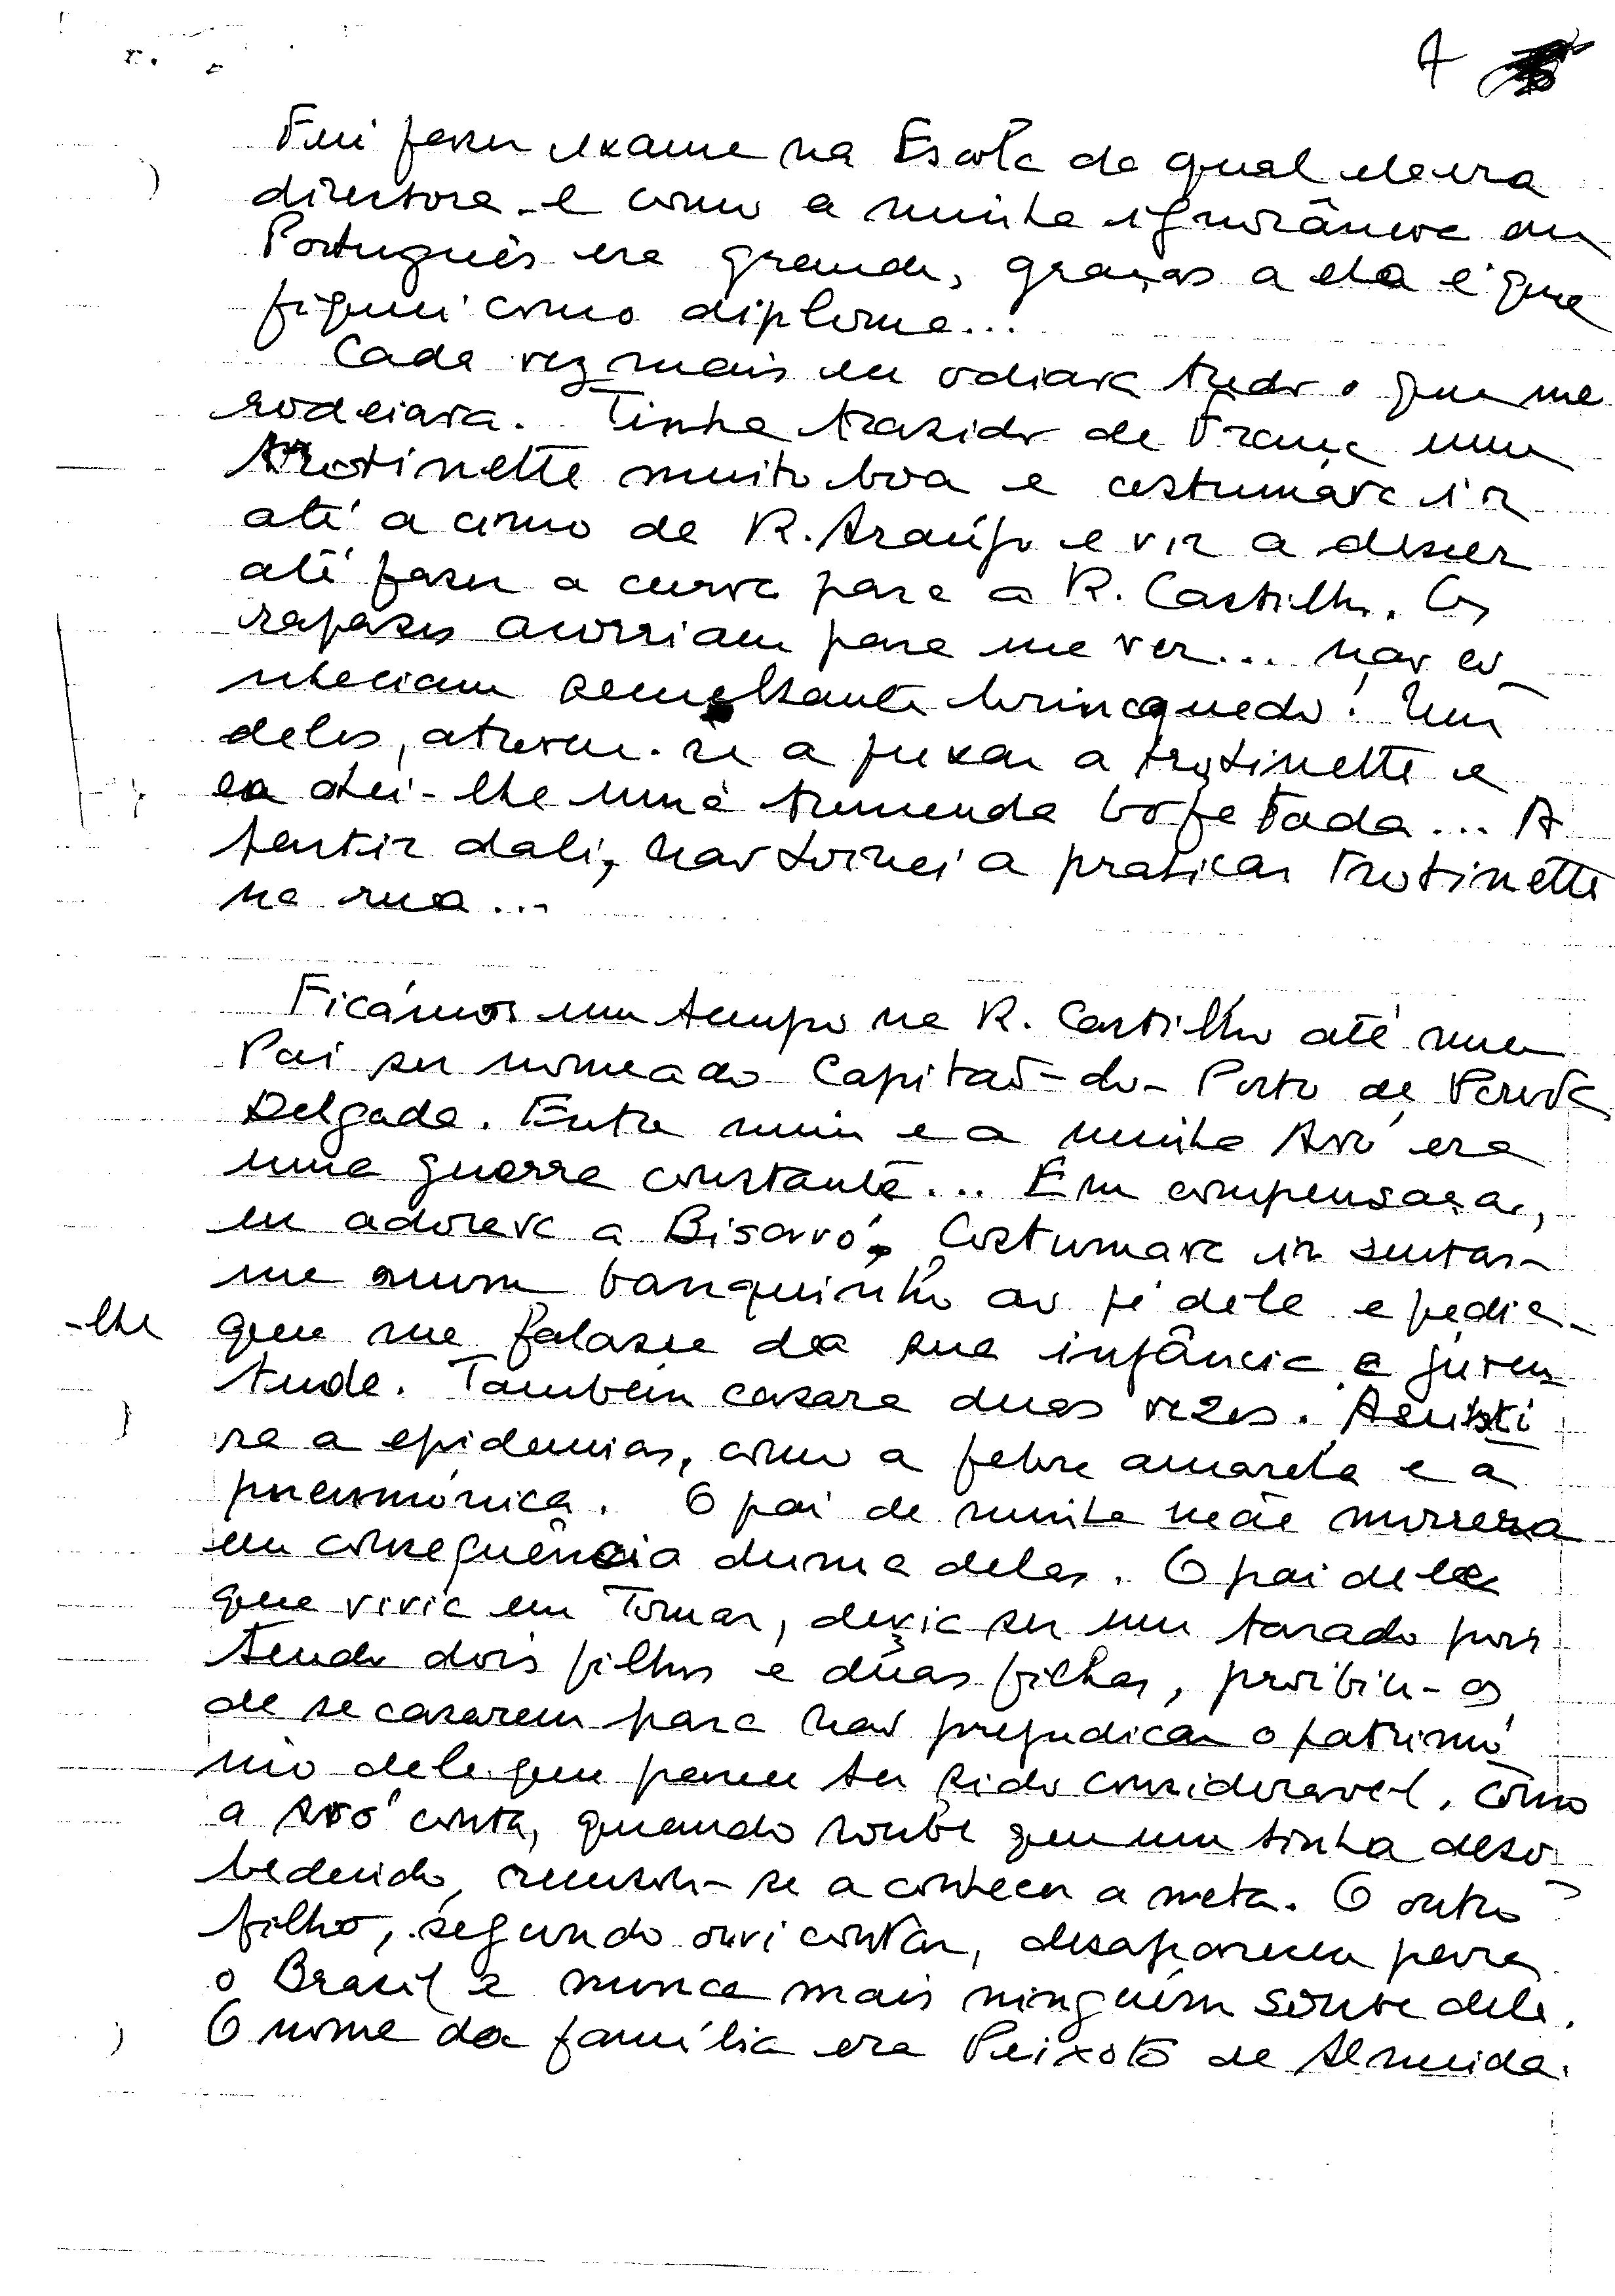 A
Fui fazer exame na Escola da qual ela era
directora e como a minha ignorância em
Português era grande, graças a ela é que
fiquei como diploma...
Cada vez mais eu odiava tudo o que me
rodeiava. Tinha trazido de França uma
trotinette muito boa e costumava ir
até a cimo da R. Araújo e vir a descer
até fazer a curva para a R. Castilho. Os
rapazes acorriam para me ver... não co_
nheciam semelhante brincquedo! Um
deles, atreveu-se a puxar a trotinette e
eu dei-lhe uma tremenda bofetada... A
partir dali, não tornei a praticar trotinette
na rua...
Ficámos um tempo na R. Castilho até meu
Pai ser nomeado Capitão-do-Porto de Ponta
Delgada. Entre mim e a minha Avó era
uma guerra constante... Em compensação,
eu adorava a Bisavó. Costumava ir sentar-
me num banquinho ao pé dela e pedia-
-lhe que me falasse da sua infância e juven
tude. Também casara duas vezes. Assisti
ra a epidemias, como a febre amarela e a
pneumónica. O pai de minha mãe morrera
em consequência duma delas. O pai dele
que vivia em Tomar, devia ser um tarado pois
tendo dois filhos e duas filhas, proibiu-os
de se casarem para não prejudicar o patrimó
nio dele que parece ter sido considerável. Como
a Avó conta, quando soube que um tinha deso-
bedecido, recusou-se a conhecer a neta. O outro
filho, segundo ouvi contar, desapareceu para
o Brasil e nunca mais ninguém soube dele.
O nome da família era Peixoto de Almeida.